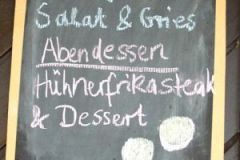 Salat & Gries
Abendessen
Hühnerfrikasteak
& Dessert